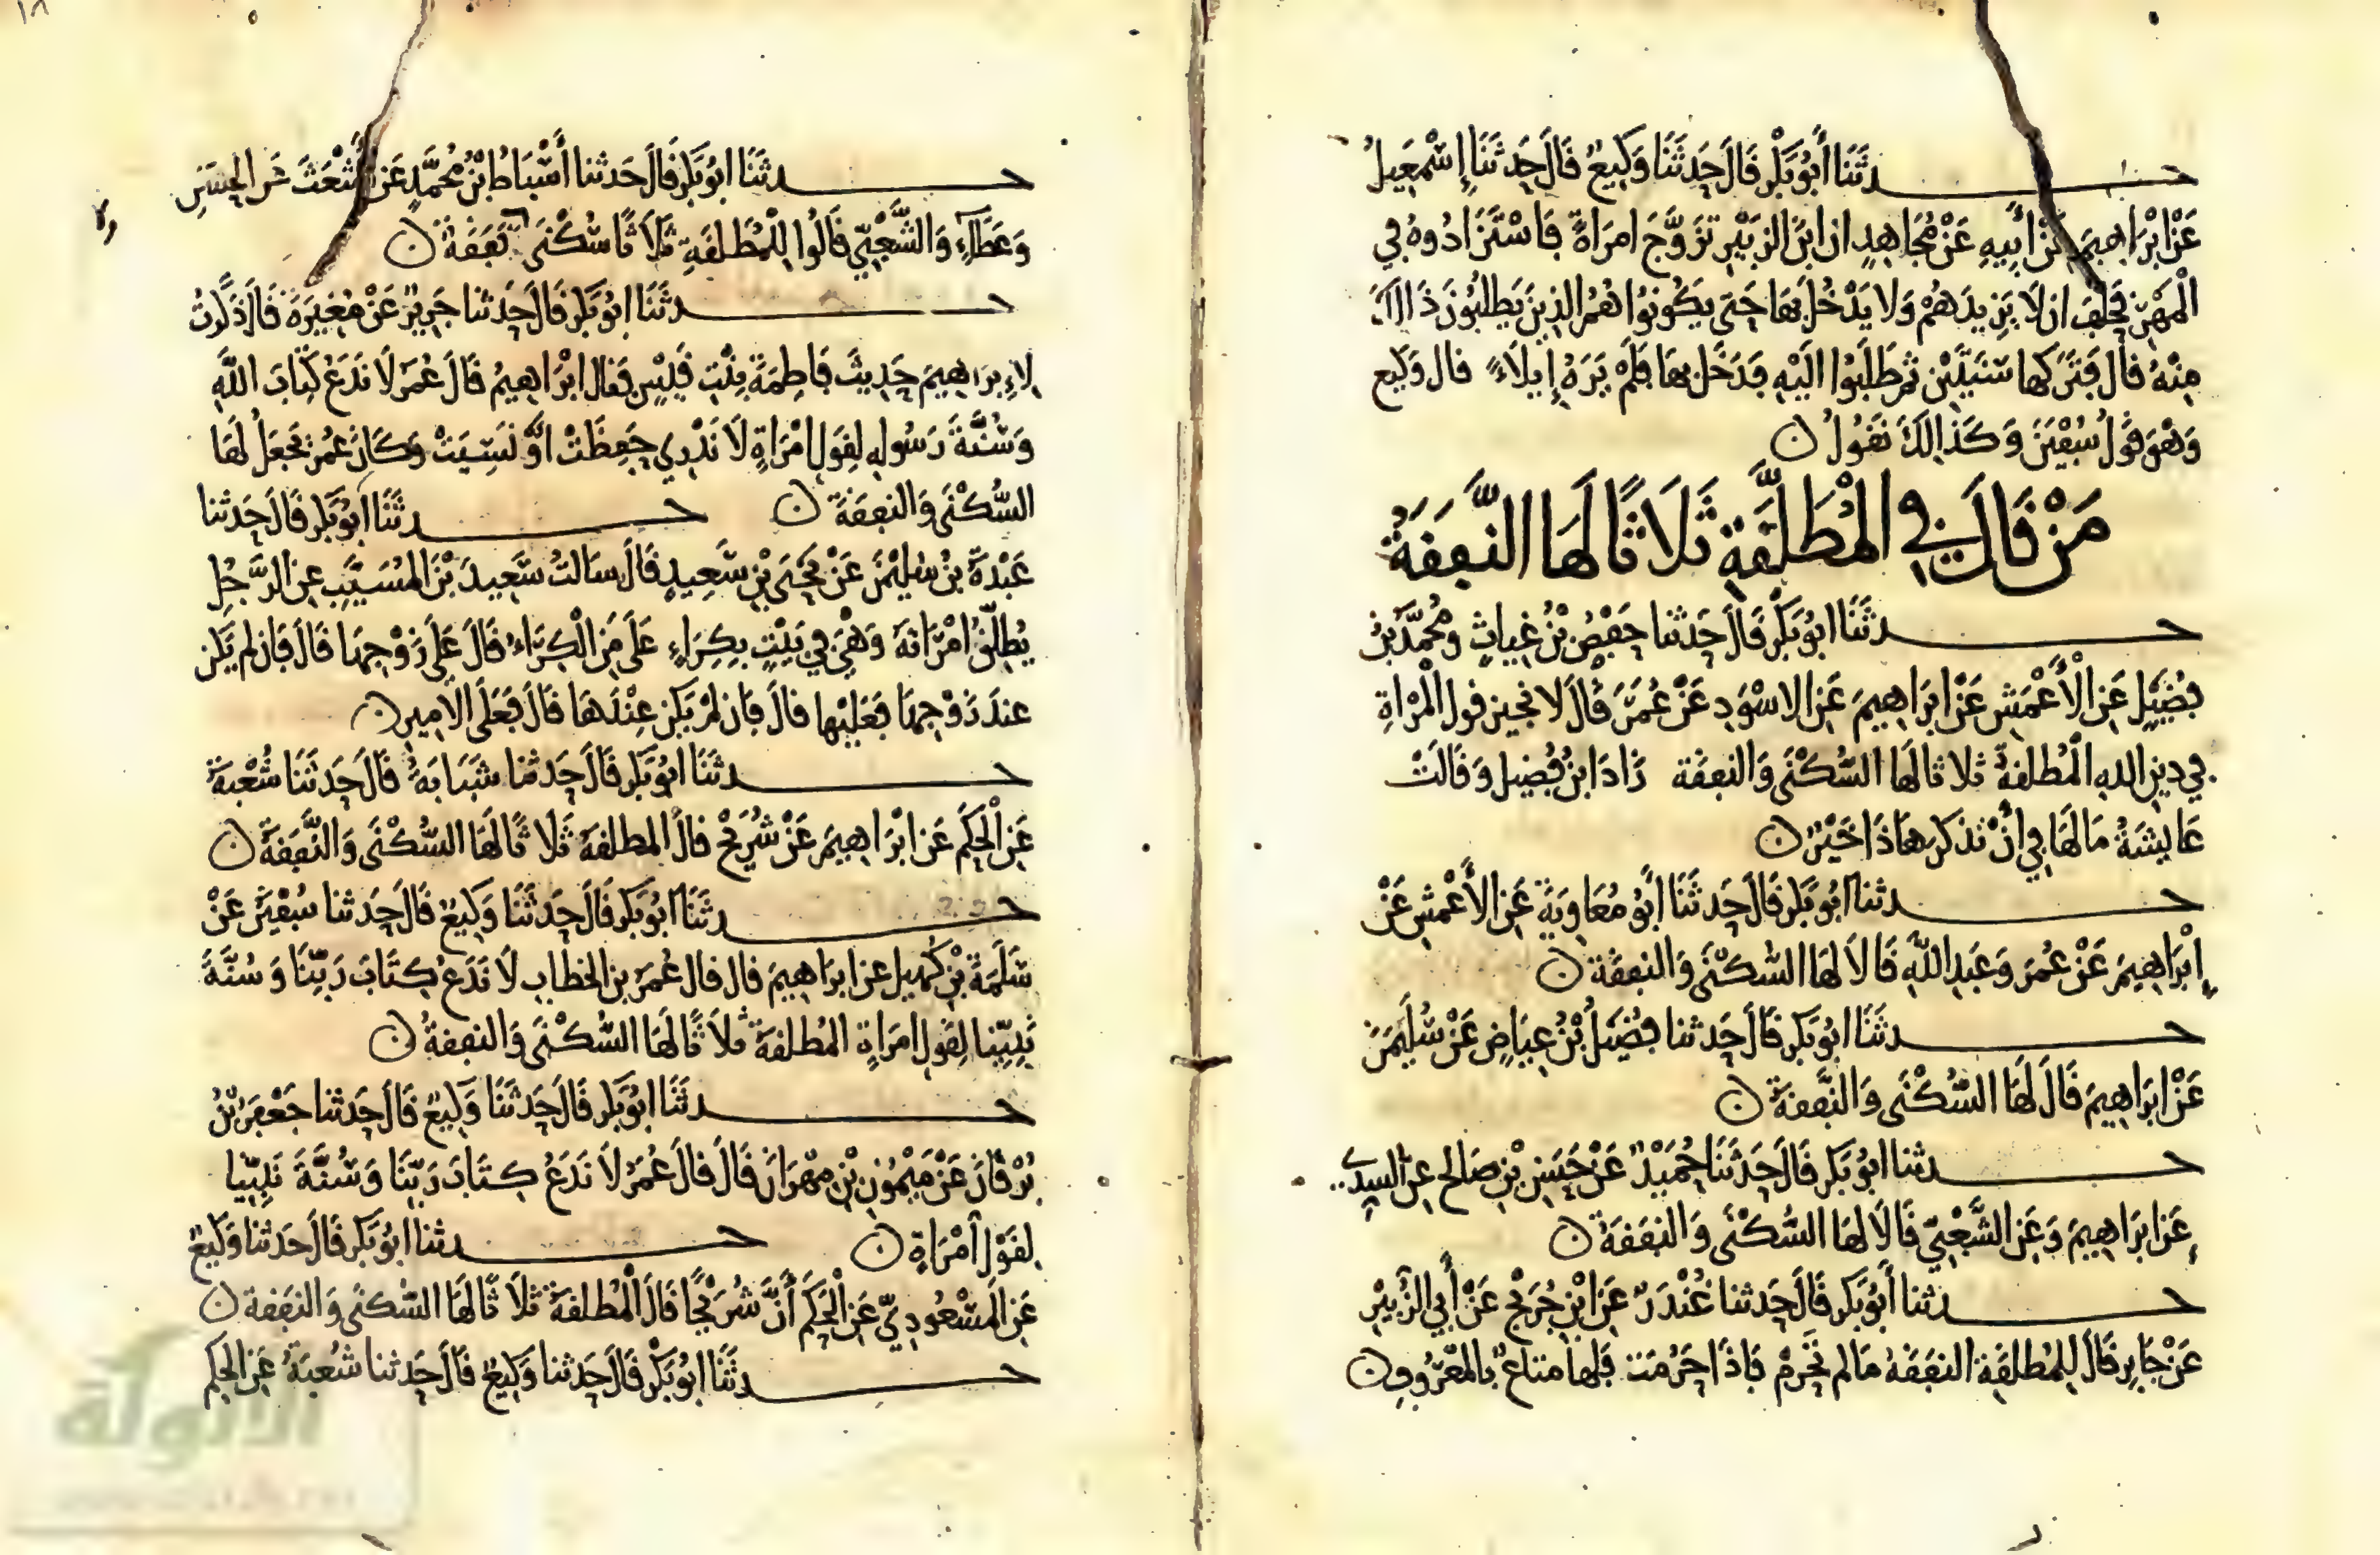 حدثنا أبو بكر قال حدثنا وكيع قال حدثنا إسمعيل
عن ابرهيم عن أبيه عن مجاهد ان ابن الزبير تزوج امراة فاستزادوه في
المهر فحلف ان لا يزيدهم ولا يدخل بها حتى يكونوا هم الذين يطلبون ذالك
منه قال فتركها سنتين ثم طلبوا اليه فدخل بها فلم يره إيلاء قال وكيع
وهو قول سفين وكذالك نقول ن
من قال في المطلقة ثلاثا لها النفقة
حدثنا ابو بكر قال حدثنا حفص بن غياث ومحمد بن
فضيل عن الأعمش عن ابراهيم عن الاسود عن عمر قال لا نجيز قول المراة
في دين الله المطلقة ثلاثا لها السكنى والنفقة زاد ابن فضيل وقالت
عايشة ما لها في أن تذكر هاذا خير ن
حدثنا ابو بكر قال حدثنا أبو معاوية عن الأعمش عن
إبراهيم عن عمر وعبد الله قالا لها السكنى والنفقة ن
حدثنا ابو بكر قال حدثنا فضيل بن عياض عن سليمن
عن ابراهيم قال لها السكنى والنفقة ن
حدثنا ابو بكر قال حدثنا حميد عن حسن بن صالح عن السدي
عن ابراهيم وعن الشعبي قالا لها السكنى والنفقة ن
حدثنا أبو بكر قال حدثنا غندر عن ابن جريج عن أبي الزبير
عن جابر قال للمطلقة النفقة ما لم تحرم فاذا حرمت فلها متاع بالمعروف ن
١٨
حدثنا ابو بكر قال حدثنا أسباط ابن محمد عن أشعث عن الحسن
وعطاء والشعبي قالوا للمطلقة ثلاثا سكنى نفقة ن
ولا
حدثنا ابو بكر قال حدثنا جرير عن مغيرة قال ذكرت
لإبراهيم حديث فاطمة بنت قيس فقال ابراهيم قال عمر لا ندع كتاب الله
وسنة رسوله لقول امراة لا ندري حفظت او نسيت وكان عمر يجعل لها
السكنى والنفقة ن حدثنا أبو بكر قال حدثنا
عبدة بن سليمن عن يحيى بن سعيد قال سالت سعيد بن المسيب عن الرجل
يطلق امراته وهي في بيت بكراء على من الكراء قال على زوجها قال فان لم يكن
عند زوجها فعليها قال فان لم يكن عندها قال فعلى الامير ن
حدثنا ابو بكر قال حدثنا شبابة قال حدثنا شعبة
عن الحكم عن ابراهيم عن شريح قال المطلقة ثلاثا لها السكنى والنفقة ن
حدثنا ابو بكر قال حدثنا وكيع قال حدثنا سفين عن
سلمة بن كهيل عن ابراهيم قال قال عمر بن الخطاب لا ندع كتاب ربنا وسنة
نبينا لقول امراة المطلقة ثلاثا لها السكنى والنفقة ن
حدثنا ابو بكر قال حدثنا وكيع قال حدثنا جعفر بن
برقان عن ميمون بن مهران قال قال عمر لا ندع كتاب ربنا وسنة نبينا
لقول امراة ن حدثنا ابو بكر قال حدثنا وكيع
عن المسعودي عن الحكم أن شريحا قال المطلقة ثلاثا لها السكنى والنفقة ن
حدثنا ابو بكر قال حدثنا وكيع قال حدثنا شعبة عن الحكم
الألوكة